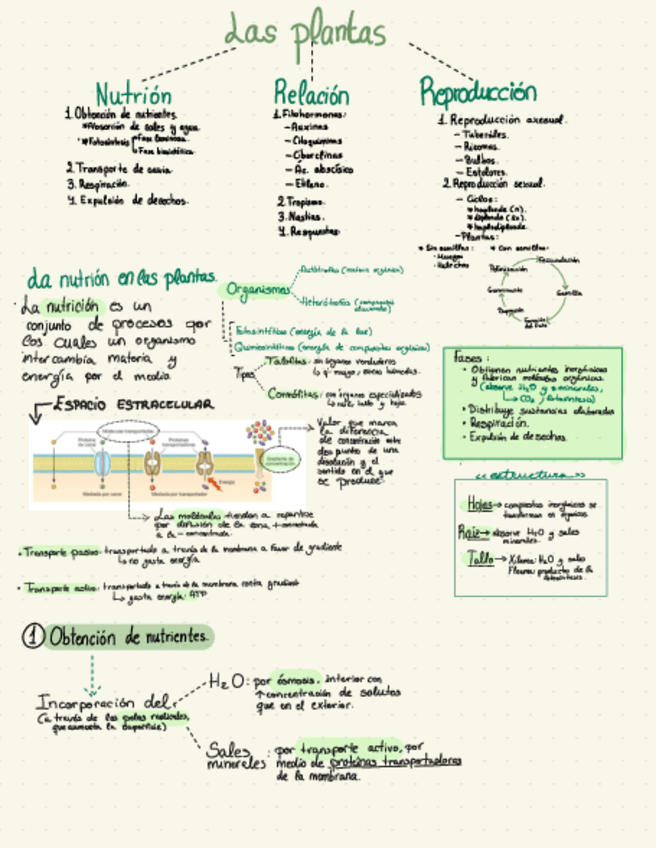 Las plantas
Nutrión
1. Obtención de nutrientes.
*Absorción de sales y agua
*Fotosíntesis
Fase luminosa
Fase biosintética
2. Transporte de savia
3. Respiración.
4. Expulsión de desechos.
Relación
1. Fitohormonas:
- Auxinas
- Citoquininas
- Giberelinas
- Ác. abscísico
- Etileno.
2. Tropismo.
3. Nastias.
4. Respuestas
Reproducción
1. Reproducción asexual.
- Tubérculos.
- Rizomas.
- Bulbos.
- Estolones.
2. Reproducción sexual.
- Ciclos:
*haplonte (n).
*diplonte (2n).
*haplodiplonte.
- Plantas:
* Sin semillas:
· Musgos
· Helechos
* Con semillas:
Polinización
Fecundación
Semilla
La nutrión en las plantas.
· La nutrición es un
conjunto de procesos por
los cuales un organismo
intercambia materia y
energía por el medio.
Organismos
Autótrofos (materia orgánica)
Heterótrofos (compuestos
Fotosintéticos (energía de la luz)
Quimiosintéticos (energía de compuestos orgánicos)
Tipos
Talofitas: sin órganos verdaderos
Cormófitas: con órganos especializados
↳ raíz, tallo y hojas.
Fases:
• Obtienen nutrientes inorgánicos
y fabrican moléculas orgánicas.
(absorve H2O y s. minerales,
↳ CO2, fotosíntesis)
• Distribuye sustancias elaboradas
• Respiración.
• Expulsión de desechos.
ESPACIO ESTRACELULAR
Moléculas transportadas
Proteína de canal
Proteínas transportadoras
Gradiente de concentración
Energía
Mediada por canal
Mediada por transportador
Valor que marca
la diferencia
de concentración entre
dos puntos de una
disolución y el
sentido en el que
se produce.
→ Las moléculas tienden a repartirse
por difusión de la zona + concentrada
a la - concentrada.
• Transporte pasivo: transportado a través de la membrana a favor de gradiente
↳ no gasta energía
• Transporte activo: transportado a través de la membrana contra gradiente
↳ gasta energía: ATP
estructura
Hojas → compuestos inorgánicos se
transforman en orgánicos.
Raíz → absorve H2O y sales
minerales.
Tallo → Xilema: H2O y sales
Floema: producto de la
fotosíntesis.
① Obtención de nutrientes.
Incorporación del
(a través de los pelos radicales,
que aumenta la superficie)
H2O: por ósmosis, interior con
↑ concentración de solutos
que en el exterior.
Sales minerales: por transporte activo, por
medio de proteínas transportadoras
de la membrana.